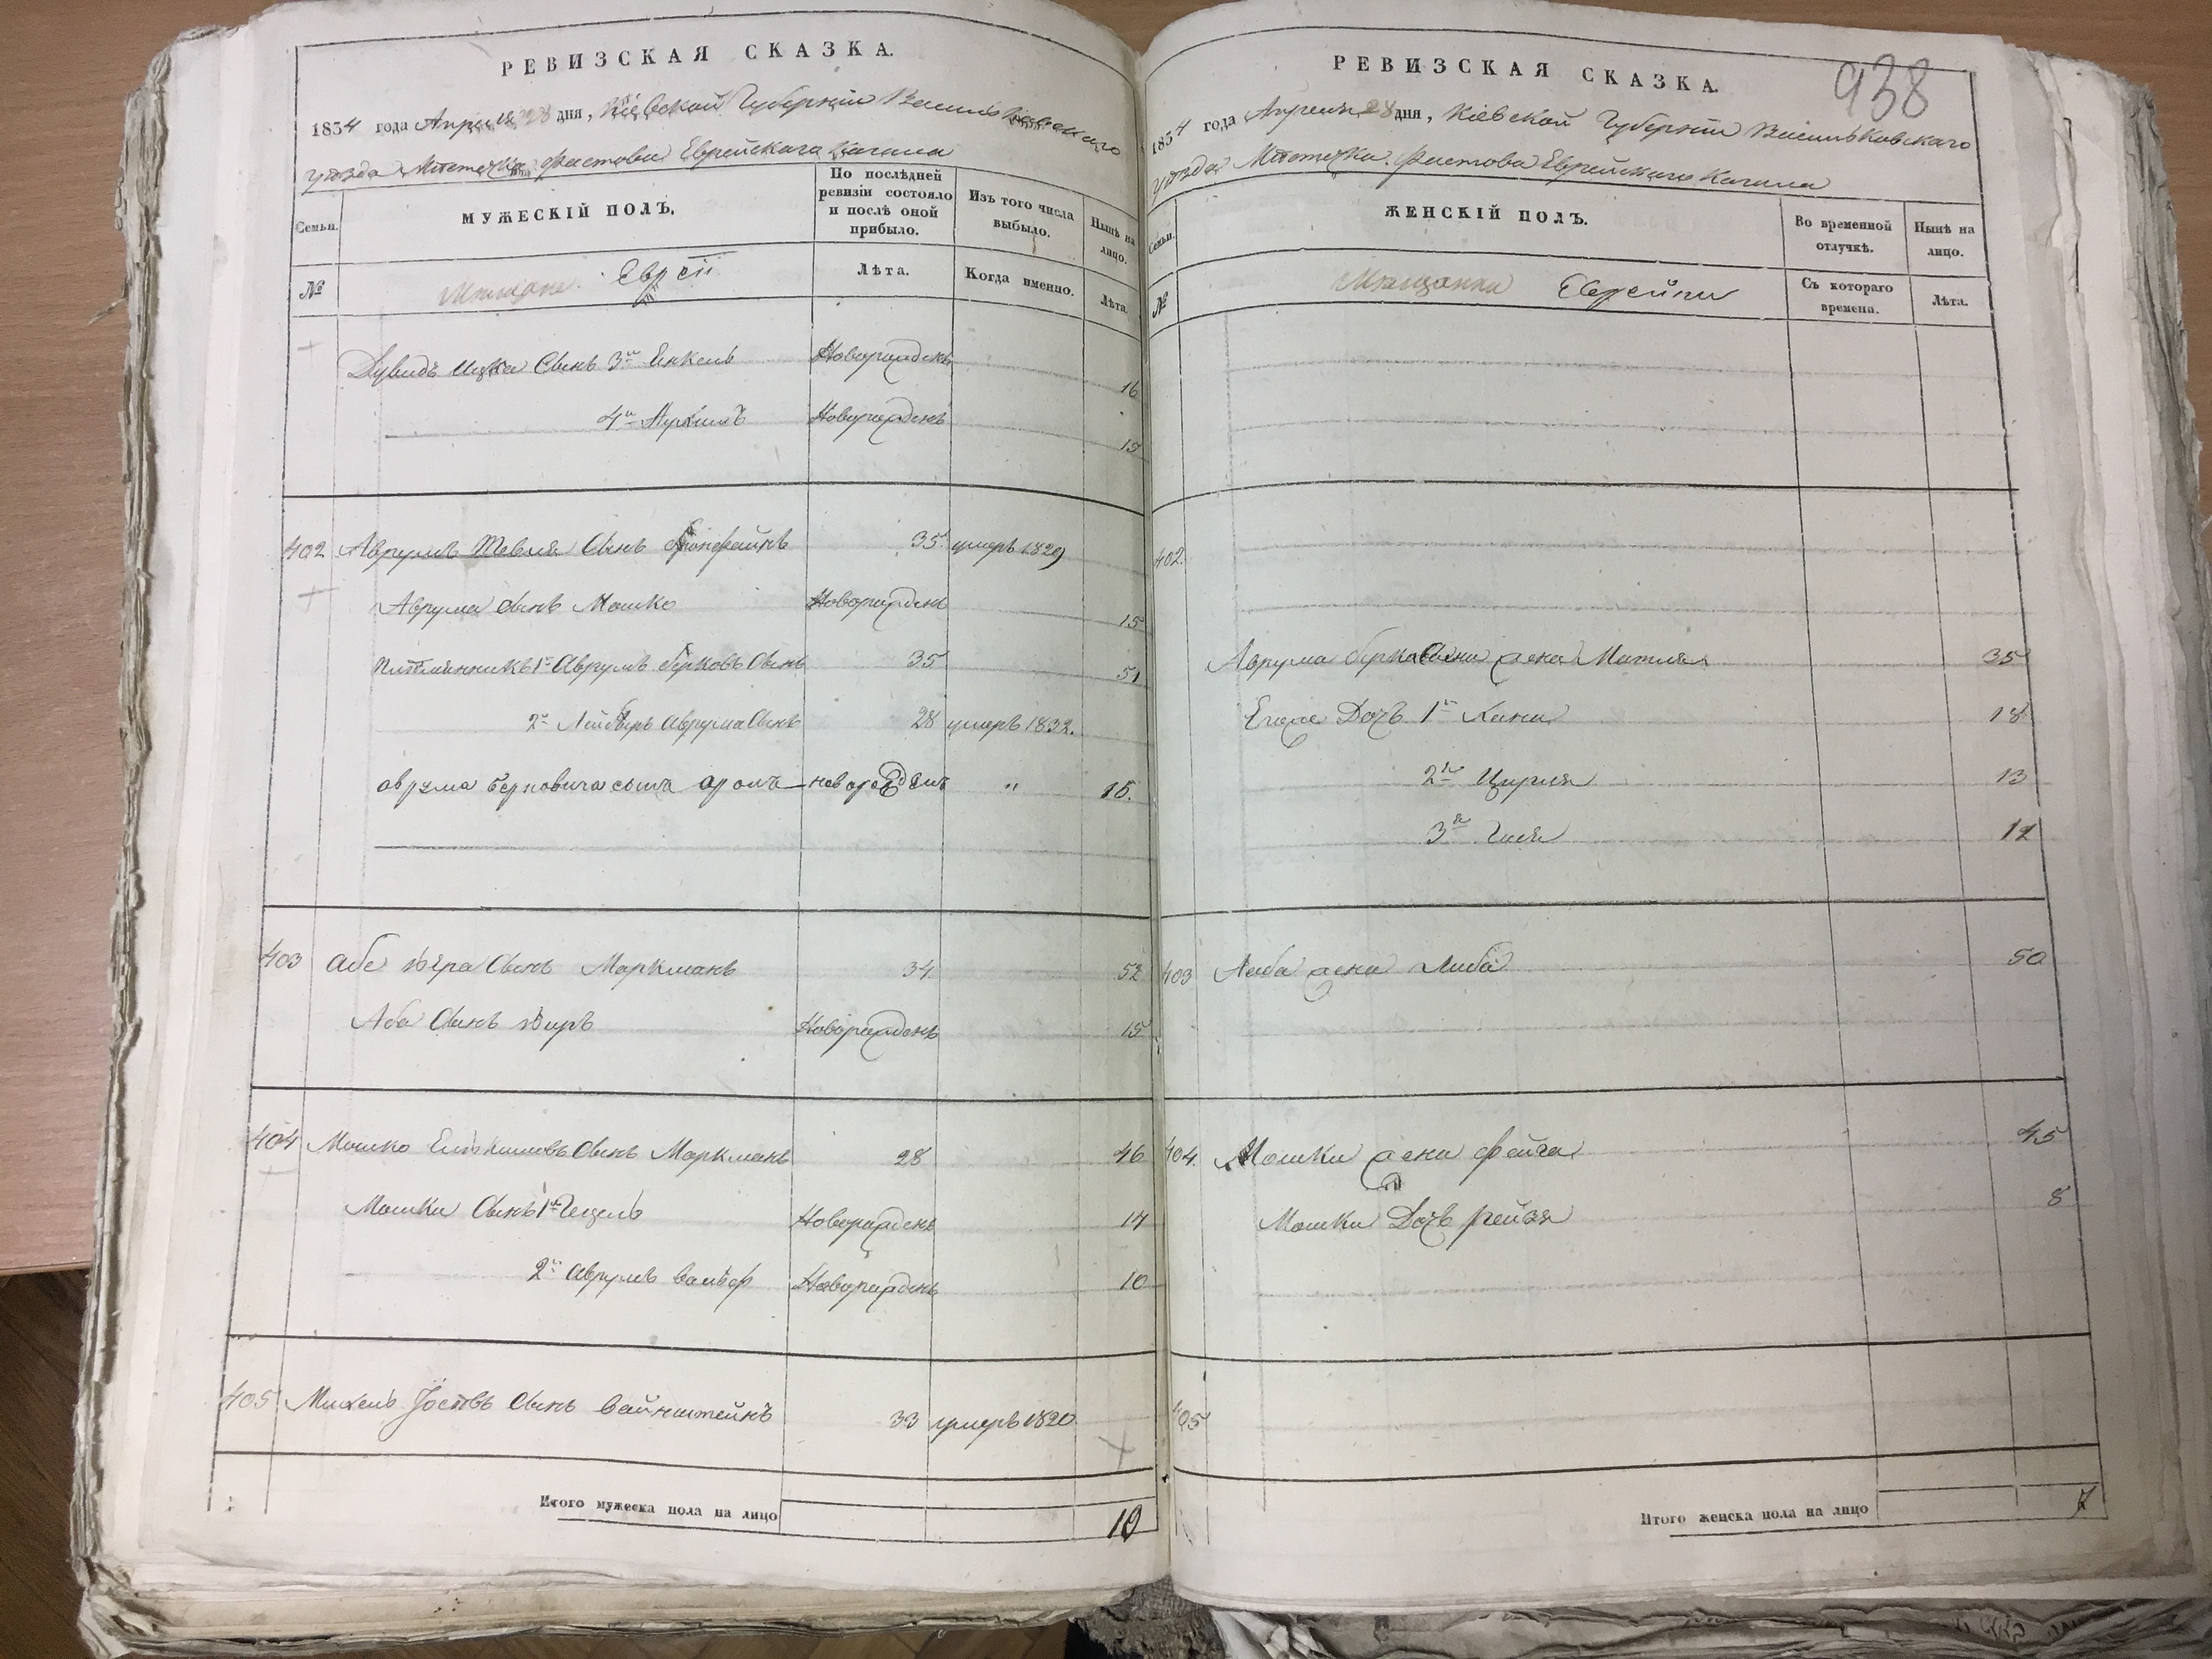 РЕВИЗСКАЯ СКАЗКА.
1834 года Апреля 28 дня, Кіевской Губерніи Васильковскаго
уѣзда Мѣстечка Фастова Еврейскаго Кагала
Семьи.
МУЖЕСКІЙ ПОЛЪ.
По послѣдней ревизіи состояло и послѣ оной прибыло.
Изъ того числа выбыло.
Нынѣ на лицо.
№
Мѣщане Евреи
Лѣта.
Когда именно.
Лѣта.
Дувидъ Ицка Сынъ 3й Янкель Новорожденъ 16
4й Новорожденъ 15
402 Аврумъ Тевеля Сынъ 35 умеръ 1829
Аврума сынъ Мошко Новорожденъ 15
Племянникъ 1й Аврумъ Берковъ Сынъ 35 51
2й Аврума Сынъ 28 умеръ 1832.
аврума Берковича сынъ аронъ новорожденъ " 15.
403 Абе Сынъ Маркманъ 34 52
Аба Сынъ Новорожденъ 15
404 Мошко Сынъ Маркманъ 28 46
Мошки Сынъ 1й Гецель Новорожденъ 14
2й Аврумъ Вольф Новорожденъ 10
405 Михель Сынъ Вайнштейнъ 33 умеръ 1820
Итого мужеска пола на лицо 10
938
РЕВИЗСКАЯ СКАЗКА.
1834 года Апреля 28 дня, Кіевской Губерніи Васильковскаго
уѣзда Мѣстечка Фастова Еврейскаго Кагала
Семьи.
ЖЕНСКІЙ ПОЛЪ.
Во временной отлучкѣ.
Нынѣ на лицо.
№
Мѣщанки Еврейки
Съ котораго времена.
Лѣта.
402.
Аврума жена 35
Егоже Дочь 1я Хана 18
2я Цирля 13
3я 12
403 жена Либа 50
404. Мошки жена Фейга 45
Мошки Дочь Рейзя 8
405
Итого женска пола на лицо 7